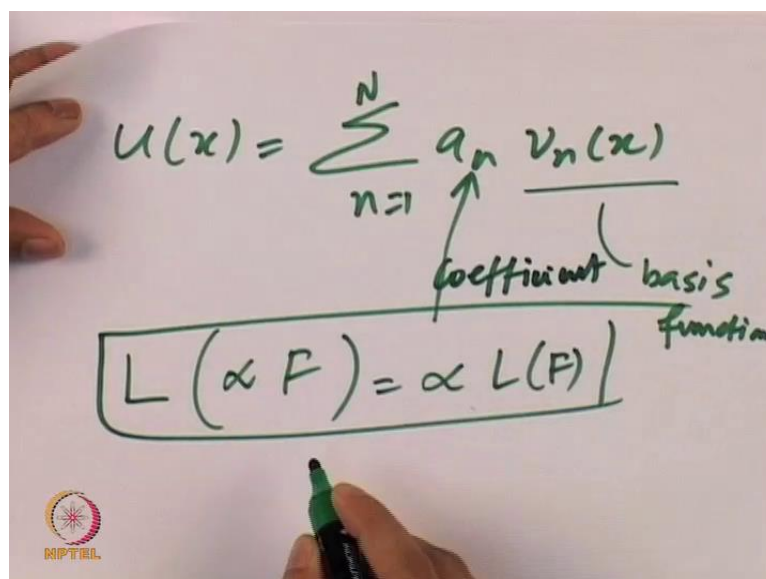 N
u(x) = ∑ aₙ vₙ(x)
n=1
coefficient basis
function
L(αF) = αL(F)
NPTEL